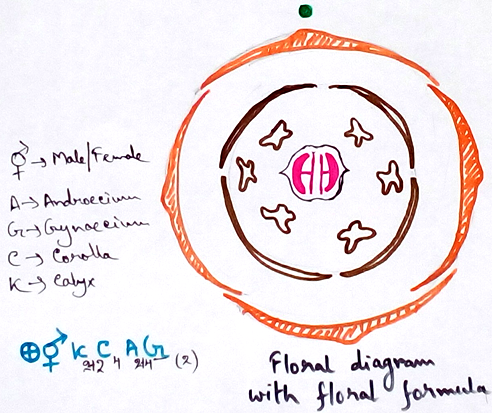 ⚥ → Male/Female
A → Androecium
G → Gynaecium
C → Corolla
K → Calyx
⊕ ⚥ K 2+2 C 4 A 2+4 G (2)
Floral diagram
with floral formula